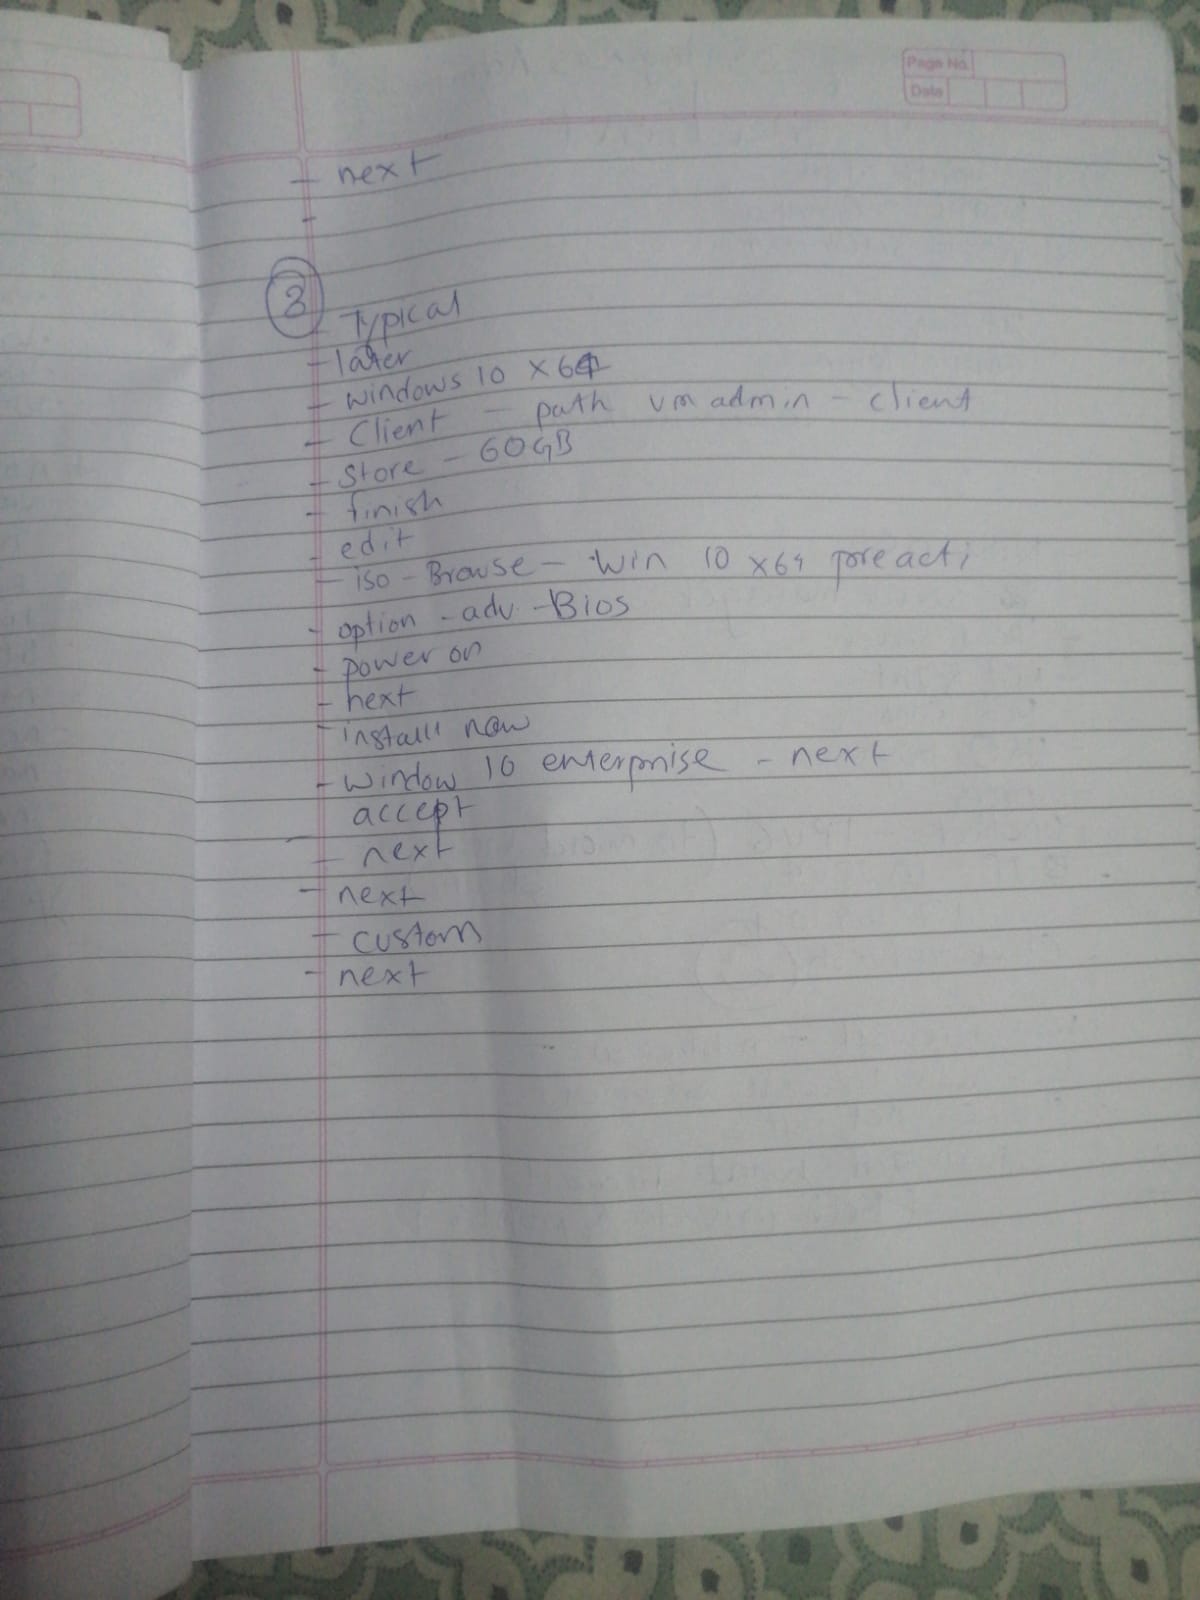 Page No.
Date
- next
-
3
- Typical
- later
- windows 10 x64
- Client - path vm admin - client
- Store - 60GB
- finish
- edit
- iso - Browse - Win 10 x64 pre acti
- option - adv. - Bios
- power on
- next
- install now
- window 10 enterprise - next
accept
- next
- next
- custom
- next